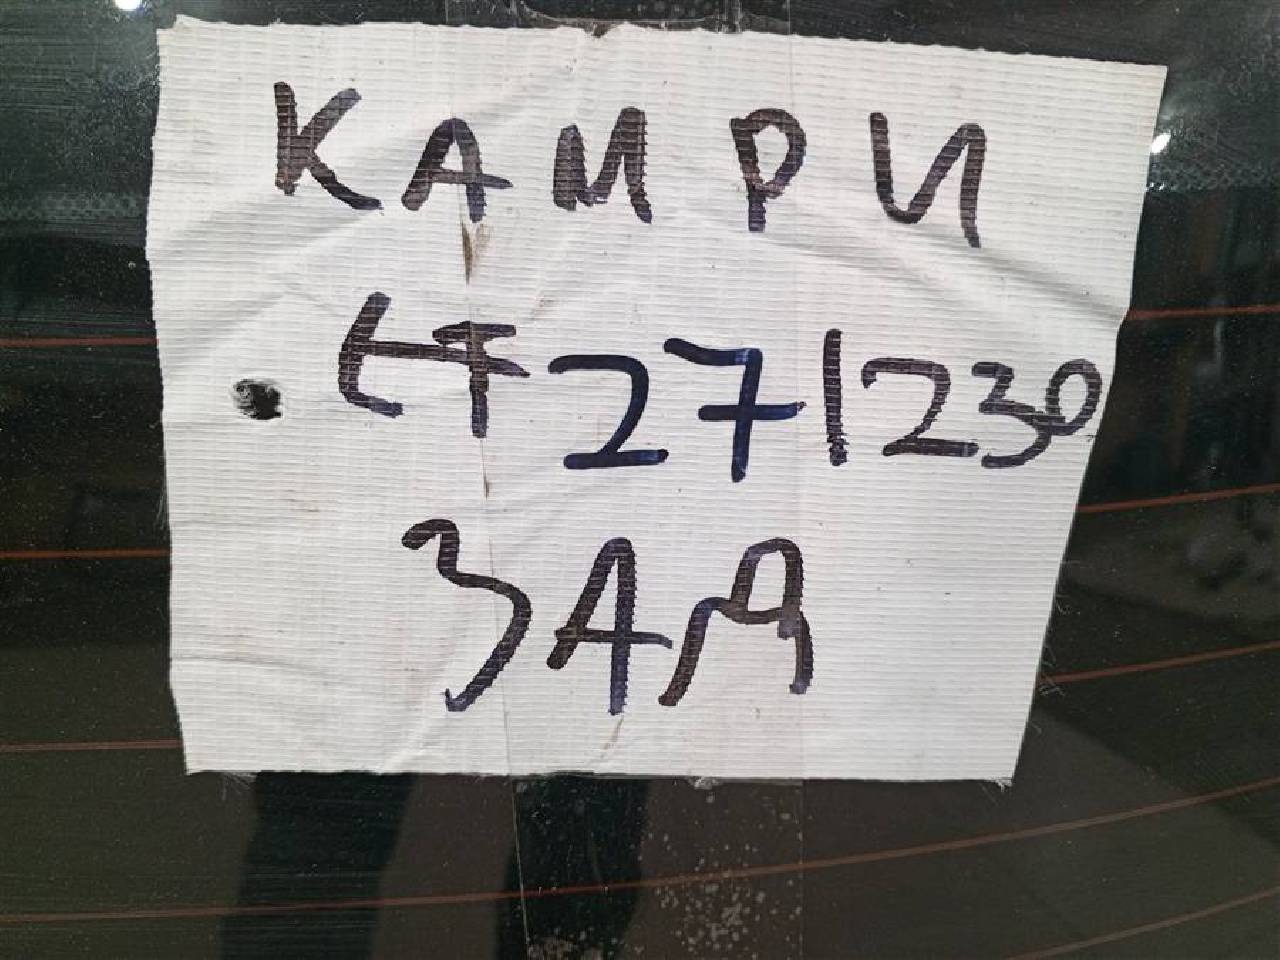 КАМРИ
271230
ЗАЯ